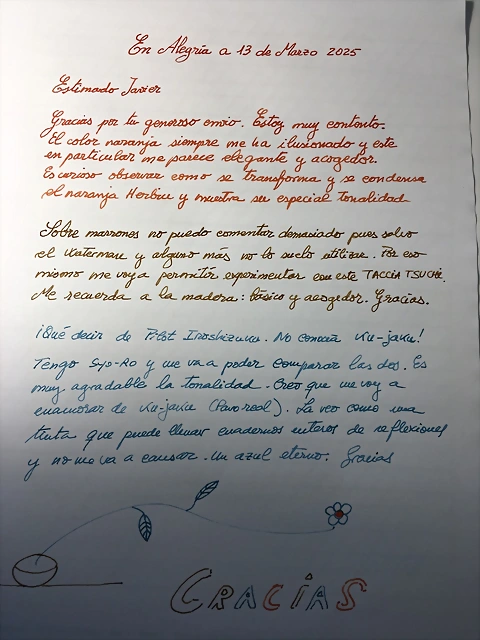 En Alegría a 13 de Marzo 2025
Estimado Javier
Gracias por tu generoso envio. Estoy muy contento.
El color naranja siempre me ha ilusionado y este
en particular me parece elegante y acogedor.
Es curioso observar como se transforma y se condensa
el naranja Herbin y muestra su especial tonalidad
Sobre marrones no puedo comentar demasiado pues salvo
el Waterman y alguno más no lo suelo utilizar. Por eso
mismo me voy a permitir experimentar con este TACCIA TSUCHI.
Me recuerda a la madera: básico y acogedor. Gracias.
¡Qué decir de Pilot Iroshizuku. No conocía Ku-jaku!
Tengo Syo-Ro y me va a poder comparar las dos. Es
muy agradable la tonalidad. Creo que me voy a
enamorar de Ku-jaku (Pavo real). La veo como una
tinta que puede llenar cuadernos enteros de reflexiones
y no me va a cansar. Un azul eterno. Gracias
GRACIAS